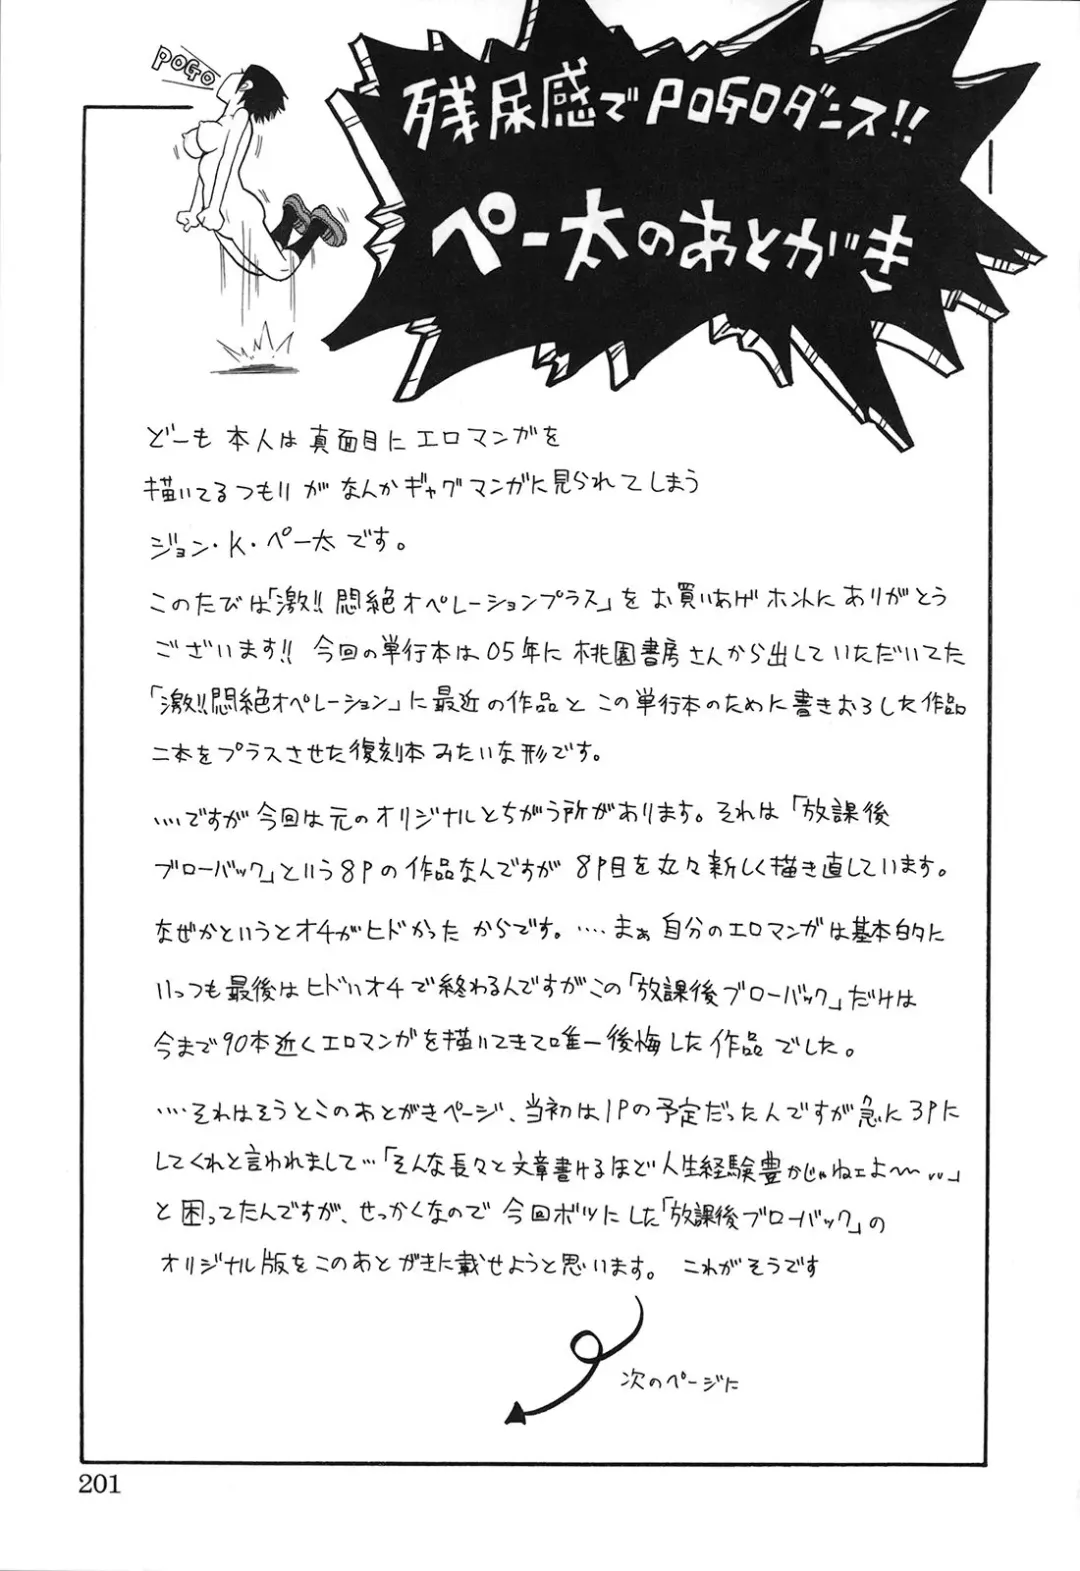 POGO
残尿感でPOGOダンス!!
ペー太のあとがき
どーも 本人は 真面目に エロマンガを
描いてるつもりが なんか ギャグマンガに見られてしまう
ジョン・K・ペー太 です。
このたびは「激!! 悶絶オペレーションプラス」を お買いあげ ホントに ありがとう
ございます!! 今回の単行本は 05年に 桃園書房さんから出していただいてた
「激!!悶絶オペレーション」に最近の作品と この単行本のために書きおろした作品
二本をプラスさせた復刻本みたいな形です。
‥‥ですが今回は元のオリジナルとちがう所があります。それは「放課後
ブローバック」という8Pの作品なんですが 8P目を丸々新しく描き直しています。
なぜかというとオチがヒドかった からです。‥‥まぁ自分のエロマンガは基本的に
いつも最後はヒドいオチで終わるんですがこの「放課後ブローバック」だけは
今まで90本近くエロマンガを描いてきて唯一後悔した作品でした。
‥‥それはそうとこのあとがきページ、当初は1Pの予定だったんですが急に3Pに
してくれと言われまして…「そんな長々と文章書けるほど人生経験豊かじゃねェよ〜‥」
と困ってたんですが、せっかくなので今回ボツにした「放課後ブローバック」の
オリジナル版をこのあとがきに載せようと思います。 これがそうです
次のページに
201